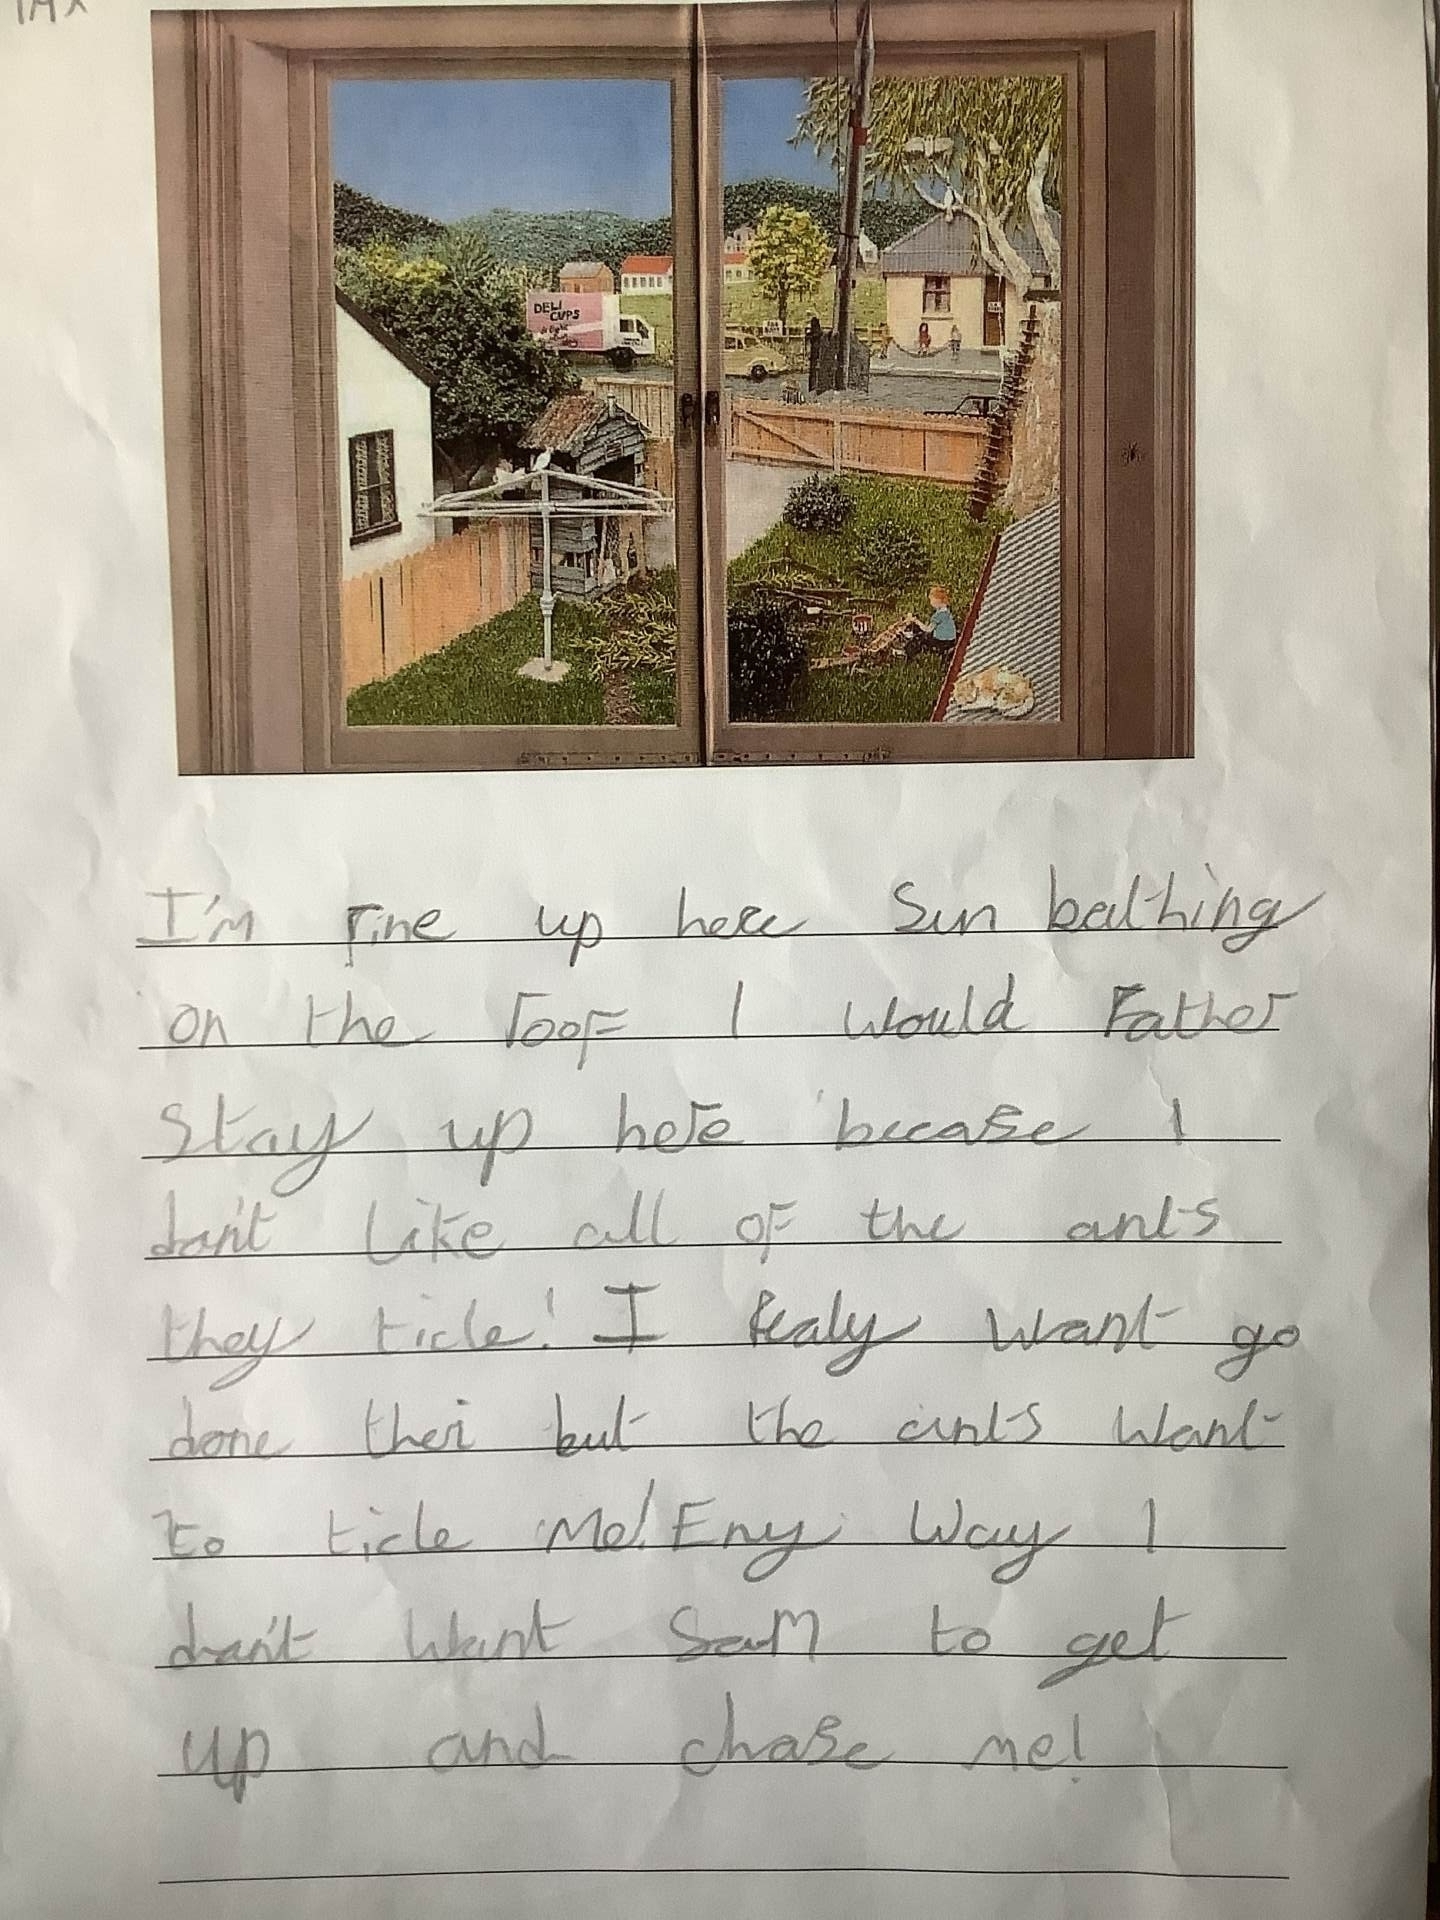 DELI
CUPS
I'm fine up here Sun bathing
on the roof I would Father
stay up here becase I
don't like all of the ants
they ticle! I realy want go
done ther but the ants want
to ticle me! Eny way I
don't want Sam to get
up and chase me!